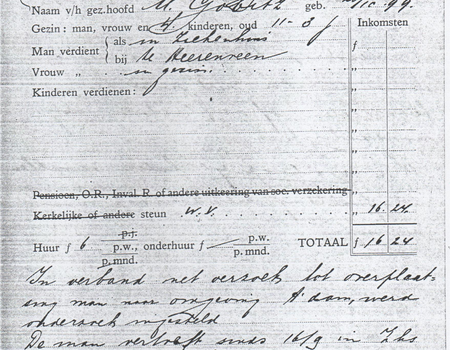 Naam v/h gez.hoofd M. geb. 99.
Gezin: man, vrouw en 4 kinderen, oud 11-3 j Inkomsten
Man verdient { als in Ziekenhuis ƒ
bij te Heerenveen "
Vrouw " in gezin. "
Kinderen verdienen:
Pensioen, O.R., Inval. R. of andere uitkeering van soc. verzekering "
Kerkelijke of andere steun W.V. " 16.24
Huur ƒ 6 p.j. p.w., p.mnd. onderhuur ƒ — p.w. p.mnd. TOTAAL ƒ 16 24
In verband met verzoek tot overplaat-
sing man naar omgeving A'dam, werd
onderzoek ingesteld
De man vertoeft sinds 16/9 in Zhs